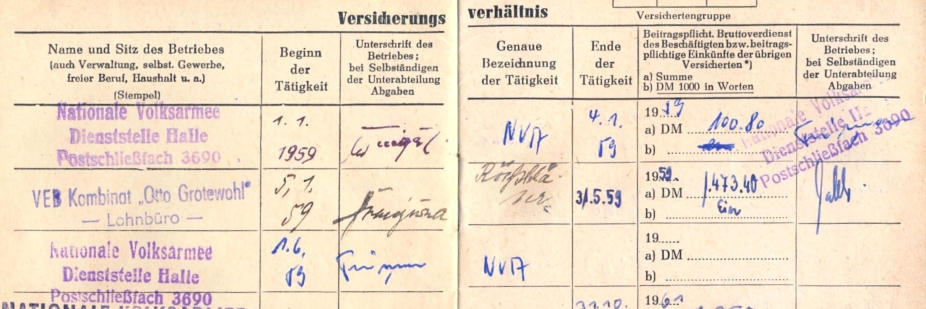 Versicherungs verhältnis
Versichertengruppe
Name und Sitz des Betriebes
(auch Verwaltung, selbst. Gewerbe,
freier Beruf, Haushalt u. a.)
(Stempel)
Beginn
der
Tätigkeit
Unterschrift des
Betriebes;
bei Selbständigen
der Unterabteilung
Abgaben
Genaue
Bezeichnung
der Tätigkeit
Ende
der
Tätigkeit
Beitragspflicht. Bruttoverdienst
des Beschäftigten bzw. beitrags-
pflichtige Einkünfte der übrigen
Versicherten*)
a) Summe
b) DM 1000 in Worten
Unterschrift des
Betriebes;
bei Selbständigen
der Unterabteilung
Abgaben
Nationale Volksarmee
Dienststelle Halle
Postschließfach 3690
1. 1.
1959
NVA
4. 1.
59
1959
a) DM 100.80
b)
Nationale Volksarmee
Dienststelle Halle
Postschließfach 3690
VEB Kombinat „Otto Grotewohl"
— Lohnbüro —
5. 1.
59
31.5.59
1959
a) DM 1.473.40
b) Ein
Nationale Volksarmee
Dienststelle Halle
Postschließfach 3690
1.6.
59
NVA
19
a) DM
b)
NATIONALE VOLKSARMEE
31.10.
1961